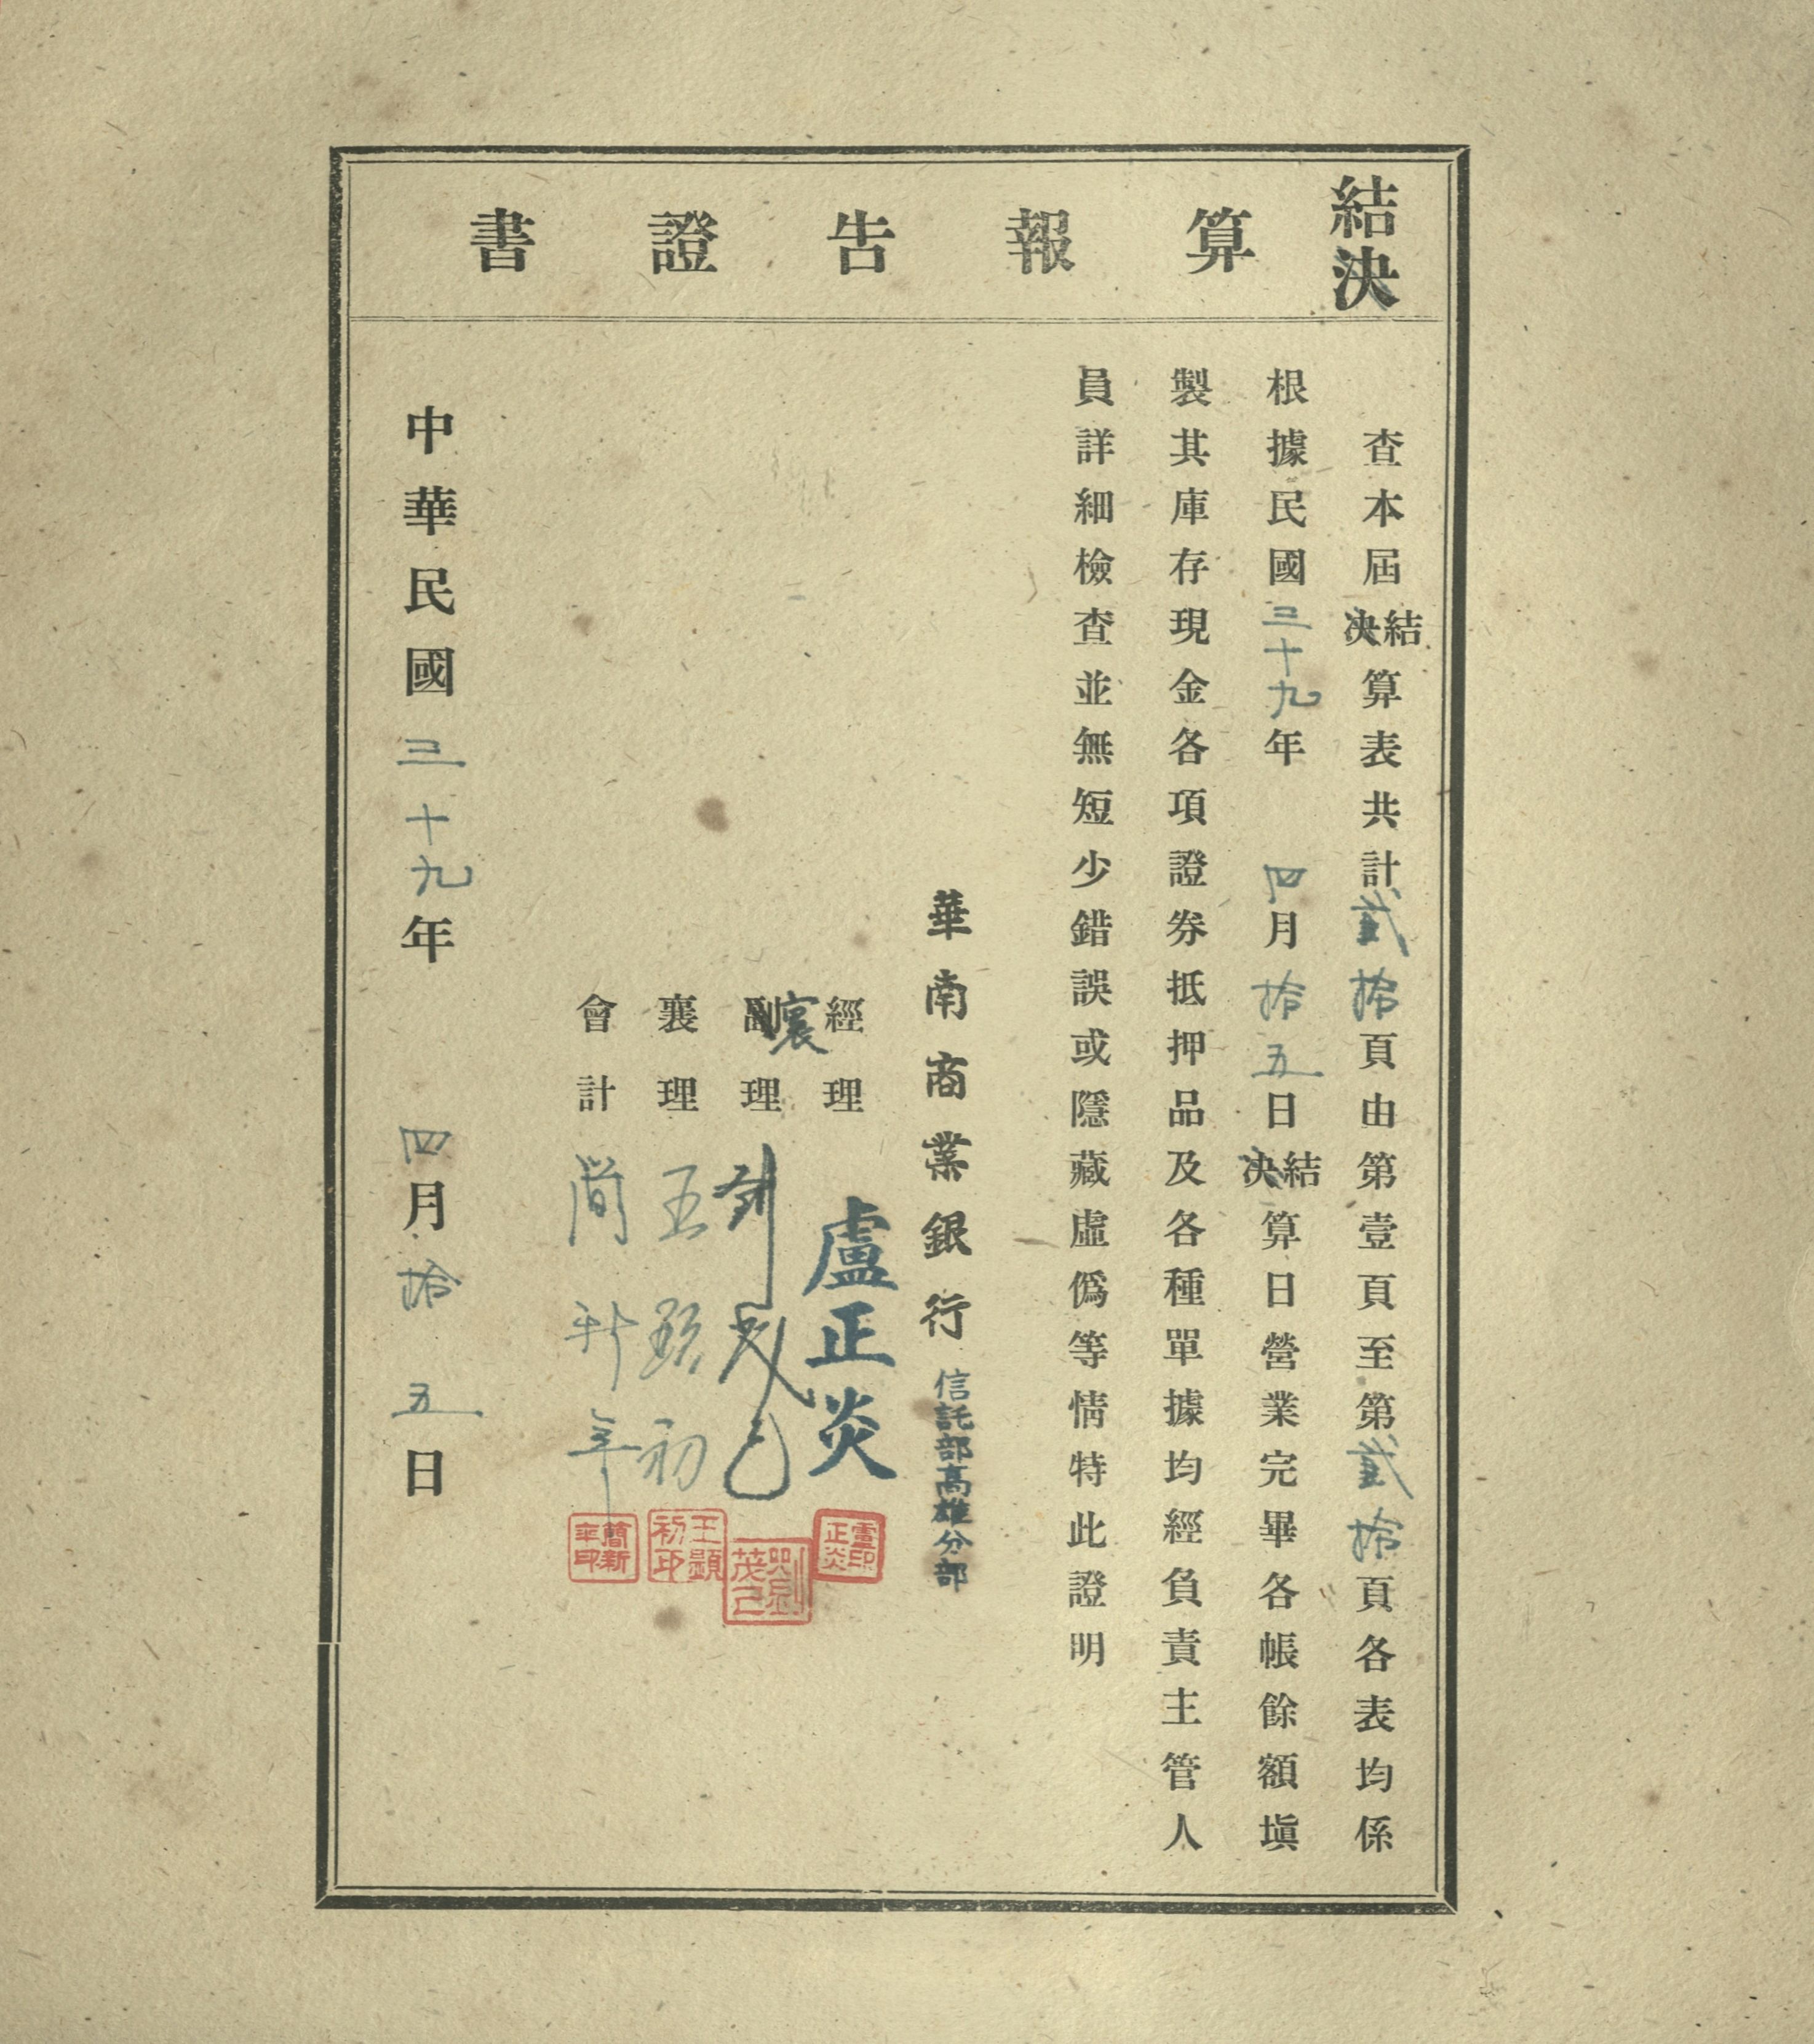 結決算報告證書
查本屆結決算表共計貳拾頁由第壹頁至第貳拾頁各表均係
根據民國三十九年四月拾五日結決算日營業完畢各帳餘額塡
製其庫存現金各項證券抵押品及各種單據均經負責主管人
員詳細檢查並無短少錯誤或隱藏虛僞等情特此證明
華南商業銀行信託部高雄分部
經理 盧正炎
盧印正炎
副襄理 劉茂己
劉茂己
襄理 王顕初
王顕初印
會計 簡新年
簡新年印
中華民國三十九年四月拾五日